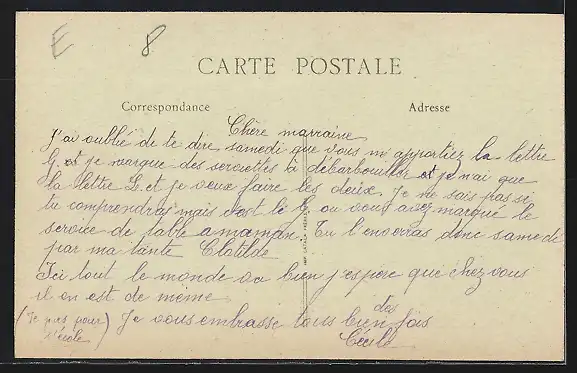 E 8
CARTE POSTALE
Correspondance Adresse
Chère marraine
J'ai oublié de te dire samedi que vous m'apportiez la lettre
G. et je marque des serviettes à débarbouiller et je n'ai que
la lettre L. et je veux faire les deux. Je ne sais pas si
tu comprendras mais c'est le G. ou vous avez marqué le
service de table a maman. Tu l'enverras donc samedi
par ma tante Clotilde
Ici tout le monde va bien j'espère que chez vous
il en est de même
(Je pars pour l'école) Je vous embrasse tous bien des fois
Cécile